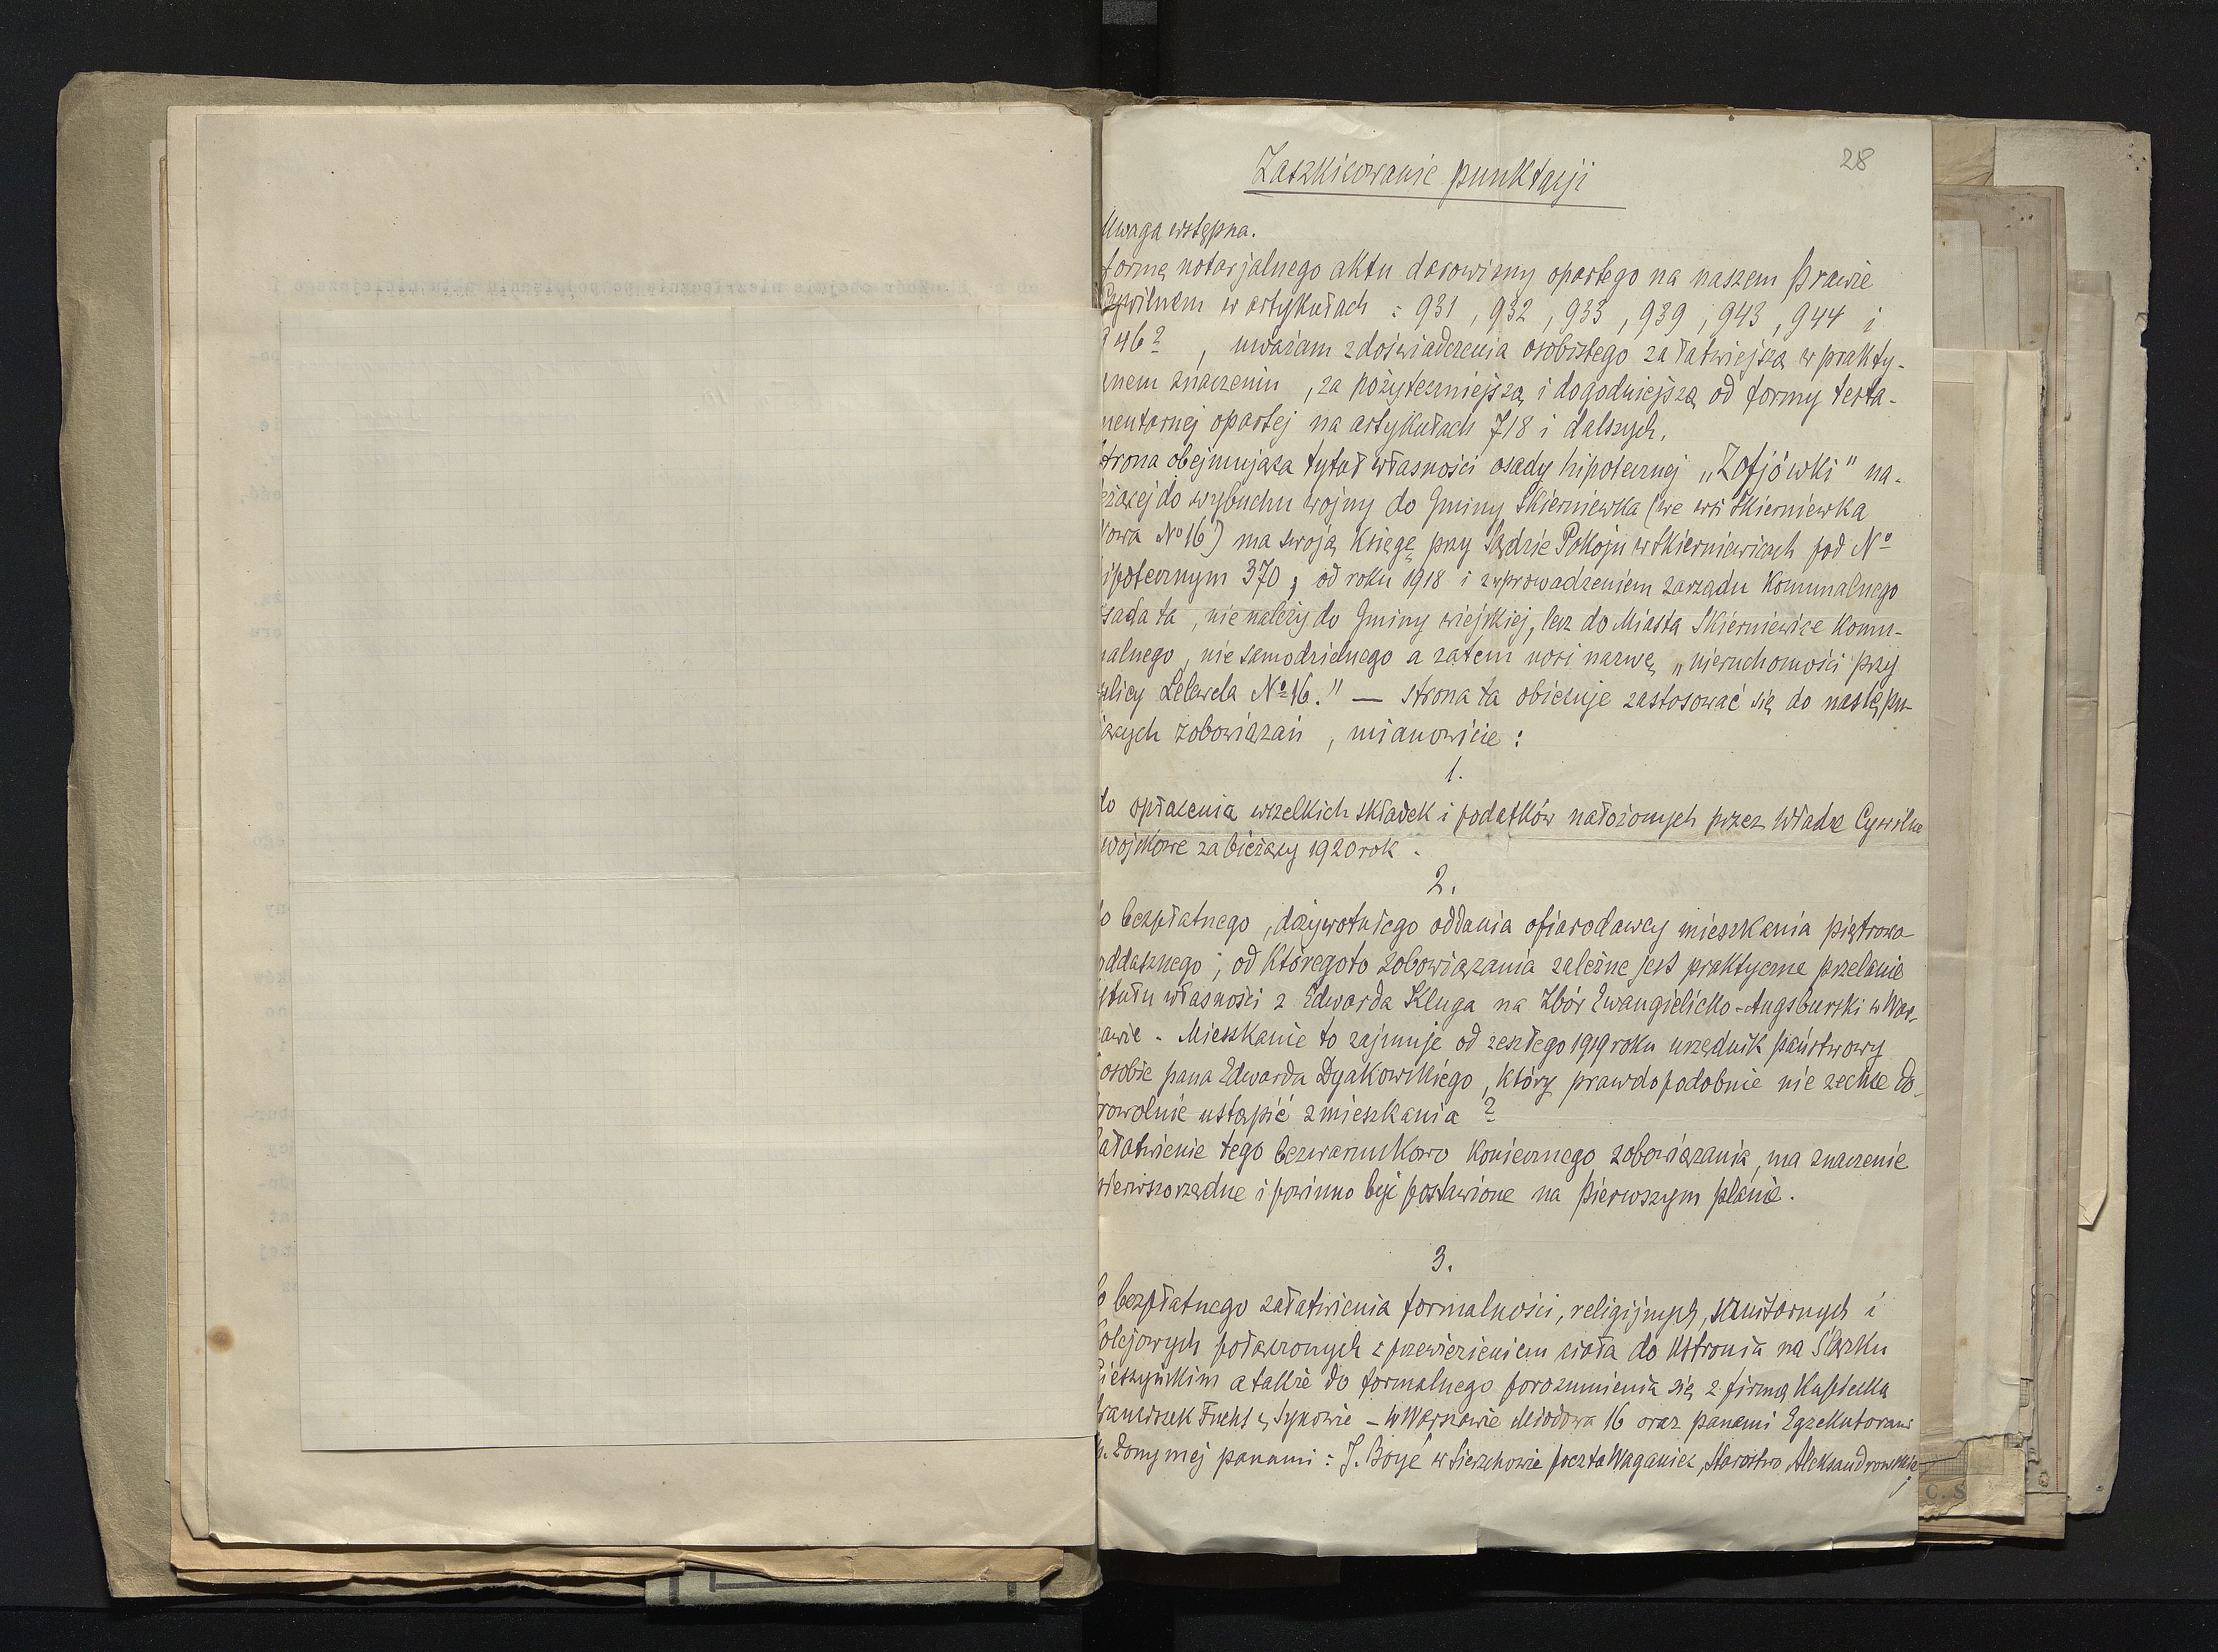 28
Zaszkicowanie punktacji
Uwaga wstępna.
formę notarjalnego aktu darowizny opartego na naszem Prawie
Cywilnem w artykułach : 931 , 932 , 933 , 939 , 943 , 944 i
946? , uważam z doświadczenia osobistego za łatwiejszą w prakty-
cznem znaczeniu , za pożyteczniejszą i dogodniejszą od formy testa-
mentarnej opartej na artykułach 718 i dalszych.
Strona obejmująca tytuł własności osady hipotecznej „Zofjówki" na-
eżącej do wybuchu wojny do Gminy Skierniewka (we wsi Skierniewka
owa № 16) ma swoją Księgę przy Sądzie Pokoju w Skierniewicach pod №
ipotecznym 370 ; od roku 1918 i z wprowadzeniem zarządu Komunalnego
sada ta , nie należy do Gminy wiejskiej, lecz do Miasta Skierniewice Komu-
nalnego , nie samodzielnego a zatem nosi nazwę „nieruchomości przy
ulicy Lelewela № 16." — strona ta obiecuje zastosować się do następu-
jących zobowiązań , mianowicie :
1.
do opłacenia wszelkich składek i podatków nałożonych przez Władze Cywilne
wojskowe za bieżący 1920 rok .
2.
do bezpłatnego , dożywotniego oddania ofiarodawcy mieszkania piętrowo
oddasznego ; od któregoto zobowiązania zależne jest praktyczne przelanie
ytułu własności z Edwarda Kluga na Zbór Ewangielicko-Augsburski w War-
zawie . Mieszkanie to zajmuje od zeszłego 1919 roku urzędnik państwowy
osobie pana Edwarda Dyakowskiego , który prawdopodobnie nie zechce do-
rowolnie ustąpić z mieszkania ?
ałatwienie tego bezwarunkowo koniecznego zobowiązania , ma znaczenie
pierwszorzędne i powinno być postawione na pierwszym planie .
3.
do bezpłatnego załatwienia formalności, religijnych, sanitarnych i
olejowych połączonych z przewiezieniem ciała do Ustronia na Ślązku
Cieszyńskim a także do formalnego porozumienia się z firmą
Franciszek Fuchs i Synowie – w Warszawie Miodowa 16 oraz panami Egzekutorami
żony mej panami : J. Boyé w poczta Waganiec , Starostwo Aleksandrowskie
i